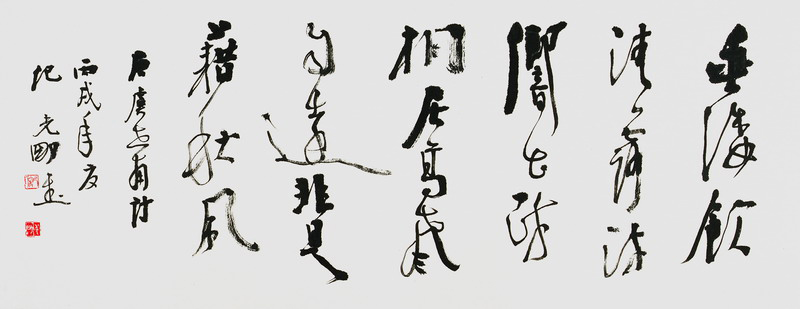 垂緌飲
清露流
響出疏
桐居高聲
自遠非是
藉秋風
唐虞世南詩
丙戌年夏
紀光明書